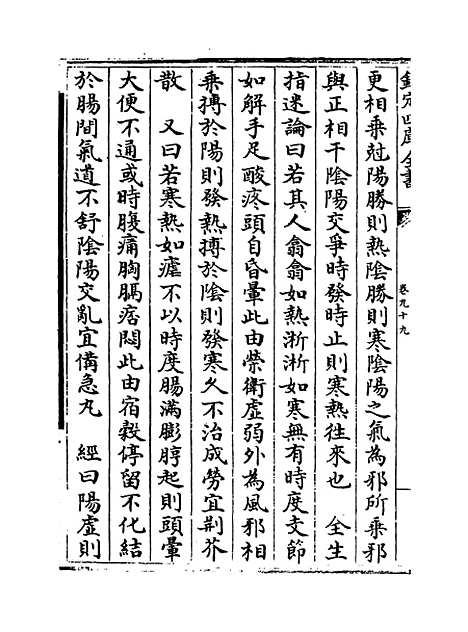 欽定四庫全書
卷九十九
更相乗尅陽勝則熱陰勝則寒陰陽之氣為邪所乗邪
與正相干陰陽交爭時發時止則寒熱徃來也　全生
指迷論曰若其人翕翕如熱淅淅如寒無有時度支節
如解手足酸疼頭自昏暈此由榮衛虛弱外為風邪相
乗搏於陽則發熱搏於陰則發寒久不治成勞宜荆芥
散　又曰若寒熱如瘧不以時度腸滿膨脝起則頭暈
大便不通或時腹痛胸膈痞悶此由宿穀停留不化結
於腸間氣道不舒陰陽交亂宜備急丸　經曰陽虛則